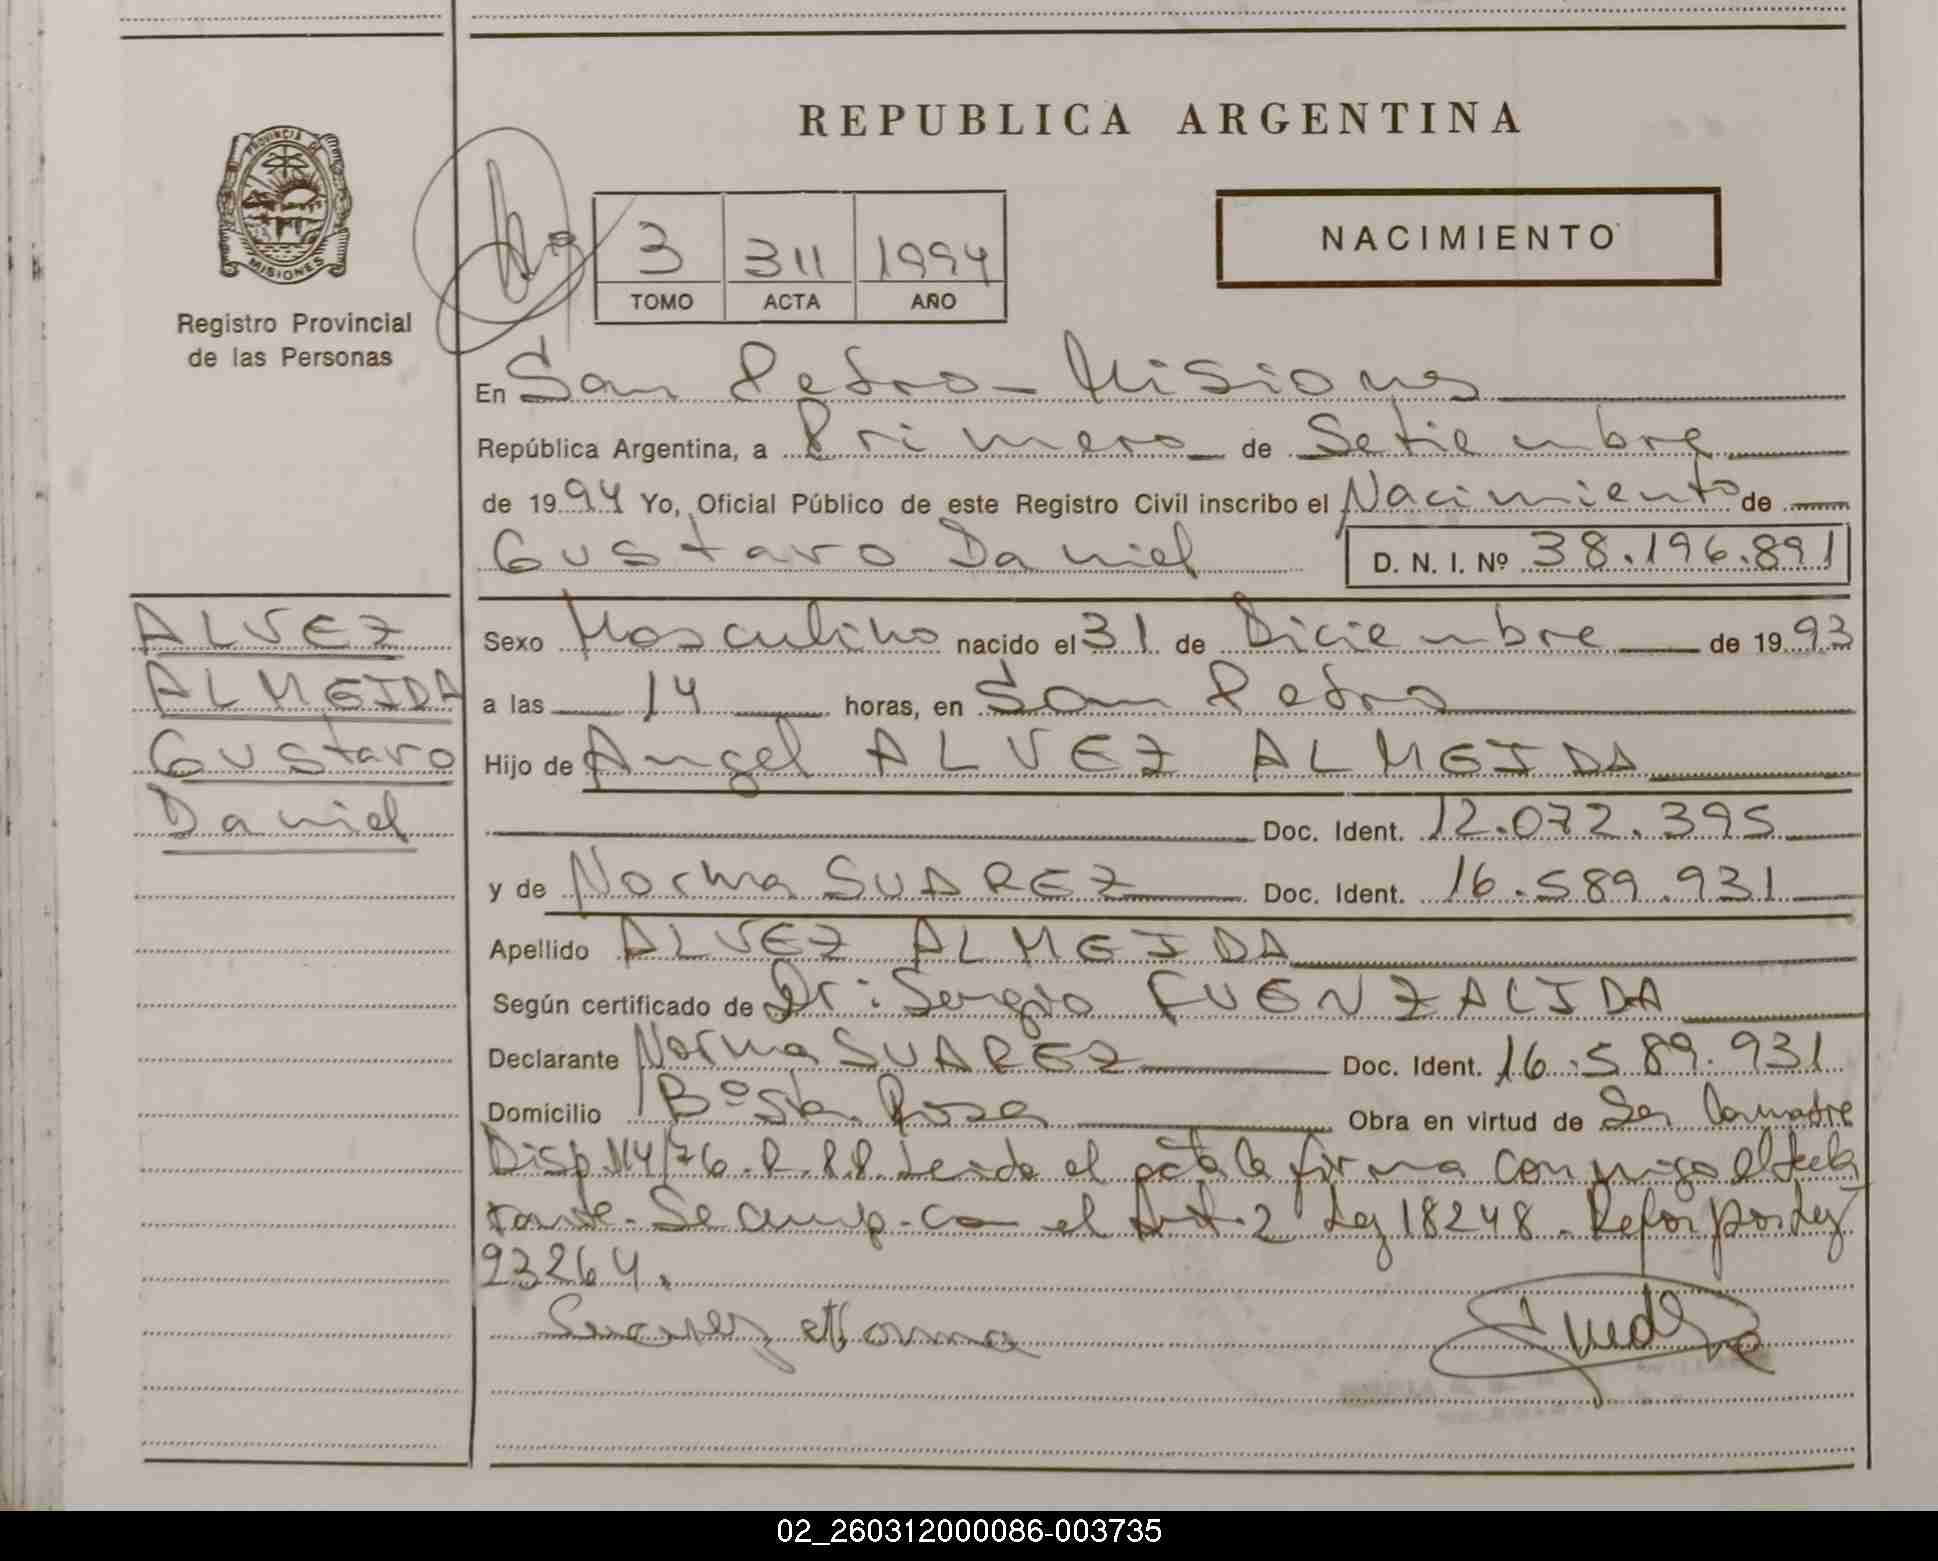 REPUBLICA ARGENTINA
PROVINCIA DE MISIONES
Registro Provincial
de las Personas
3 311 1994
TOMO ACTA AÑO
NACIMIENTO
En San Pedro - Misiones
República Argentina, a Primero de Setiembre
de 1994 Yo, Oficial Público de este Registro Civil inscribo el Nacimiento de
Gustavo Daniel D. N. I. Nº 38.196.891
ALVEZ
ALMEIDA
Gustavo
Daniel
Sexo Masculino nacido el 31 de Diciembre de 1993
a las 14 horas, en San Pedro
Hijo de Angel ALVEZ ALMEIDA
Doc. Ident. 12.072.395
y de Norma SUAREZ Doc. Ident. 16.589.931
Apellido ALVEZ ALMEIDA
Según certificado de Dr: Sergio FUENZALIDA
Declarante Norma SUAREZ Doc. Ident. 16.589.931
Domicilio Bº Sta. Rosa Obra en virtud de Ser la madre
Disp. 114/76. R.P.P. Leida el acta la firma conmigo el decla
rante. Se cump. con el Art. 2 Ley 18248. Refor por Ley
23264.
Suarez Norma
02_260312000086-003735